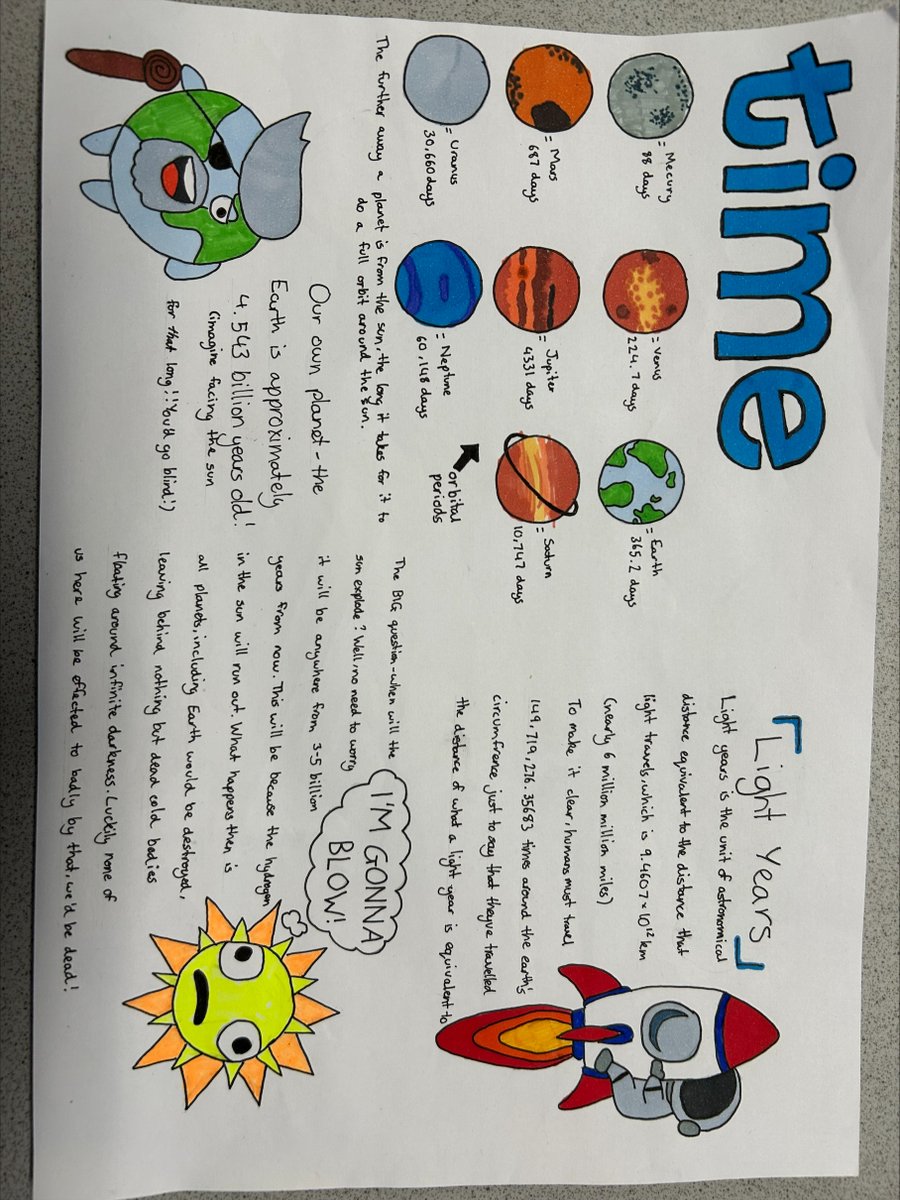 time
= Mecury
88 days
= Venus
224.7 days
= Earth
365.2 days
= Mars
687 days
= Jupiter
4331 days
= Saturn
10,747 days
= Uranus
30,660 days
= Neptune
60,148 days
orbital
periods
The further away a planet is from the sun, the long it takes for it to
do a full orbit around the sun.
Our own planet - the
Earth is approximately
4.543 billion years old!
(imagine facing the sun
for that long!! You'd go blind!)
Light Years
Light years is the unit of astronomical
distance equivalent to the distance that
light travels, which is 9.4607 x 10¹² km
(nearly 6 million million miles)
To make it clear, humans must travel
149,719,276.35683 times around the earth's
circumfrence just to say that theyve travelled
the distance of what a light year is equivalent to
The BIG question - when will the
sun explode? Well, no need to worry
it will be anywhere from 3-5 billion
years from now. This will be because the hydrogen
in the sun will run out. What happens then is
all planets, including Earth would be destroyed,
leaving behind nothing but dead cold bodies
floating around infinite darkness. Luckily none of
us here will be effected to badly by that, we'd be dead!
I'M GONNA
BLOW!